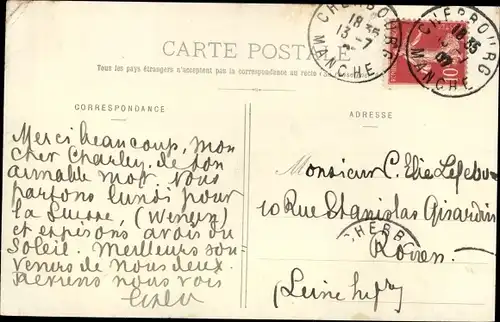 CHERBOURG
18 35
13 - 7
MANCHE
CHERBOURG
18 35
MANCHE
10
CARTE POSTALE
Tous les pays étrangers n'acceptent pas la correspondance au recto
CORRESPONDANCE
ADRESSE
Merci beaucoup, mon
cher Charley, de ton
aimable mot. Nous
partons lundi pour
la Suisse, (Wengen)
et espérons avoir du
soleil. Meilleurs sou-
venirs de nous deux.
nous
Monsieur C. Elie Lefebvre
10 Rue Stanislas Girardin
CHERB
Rouen
(Seine Infre)